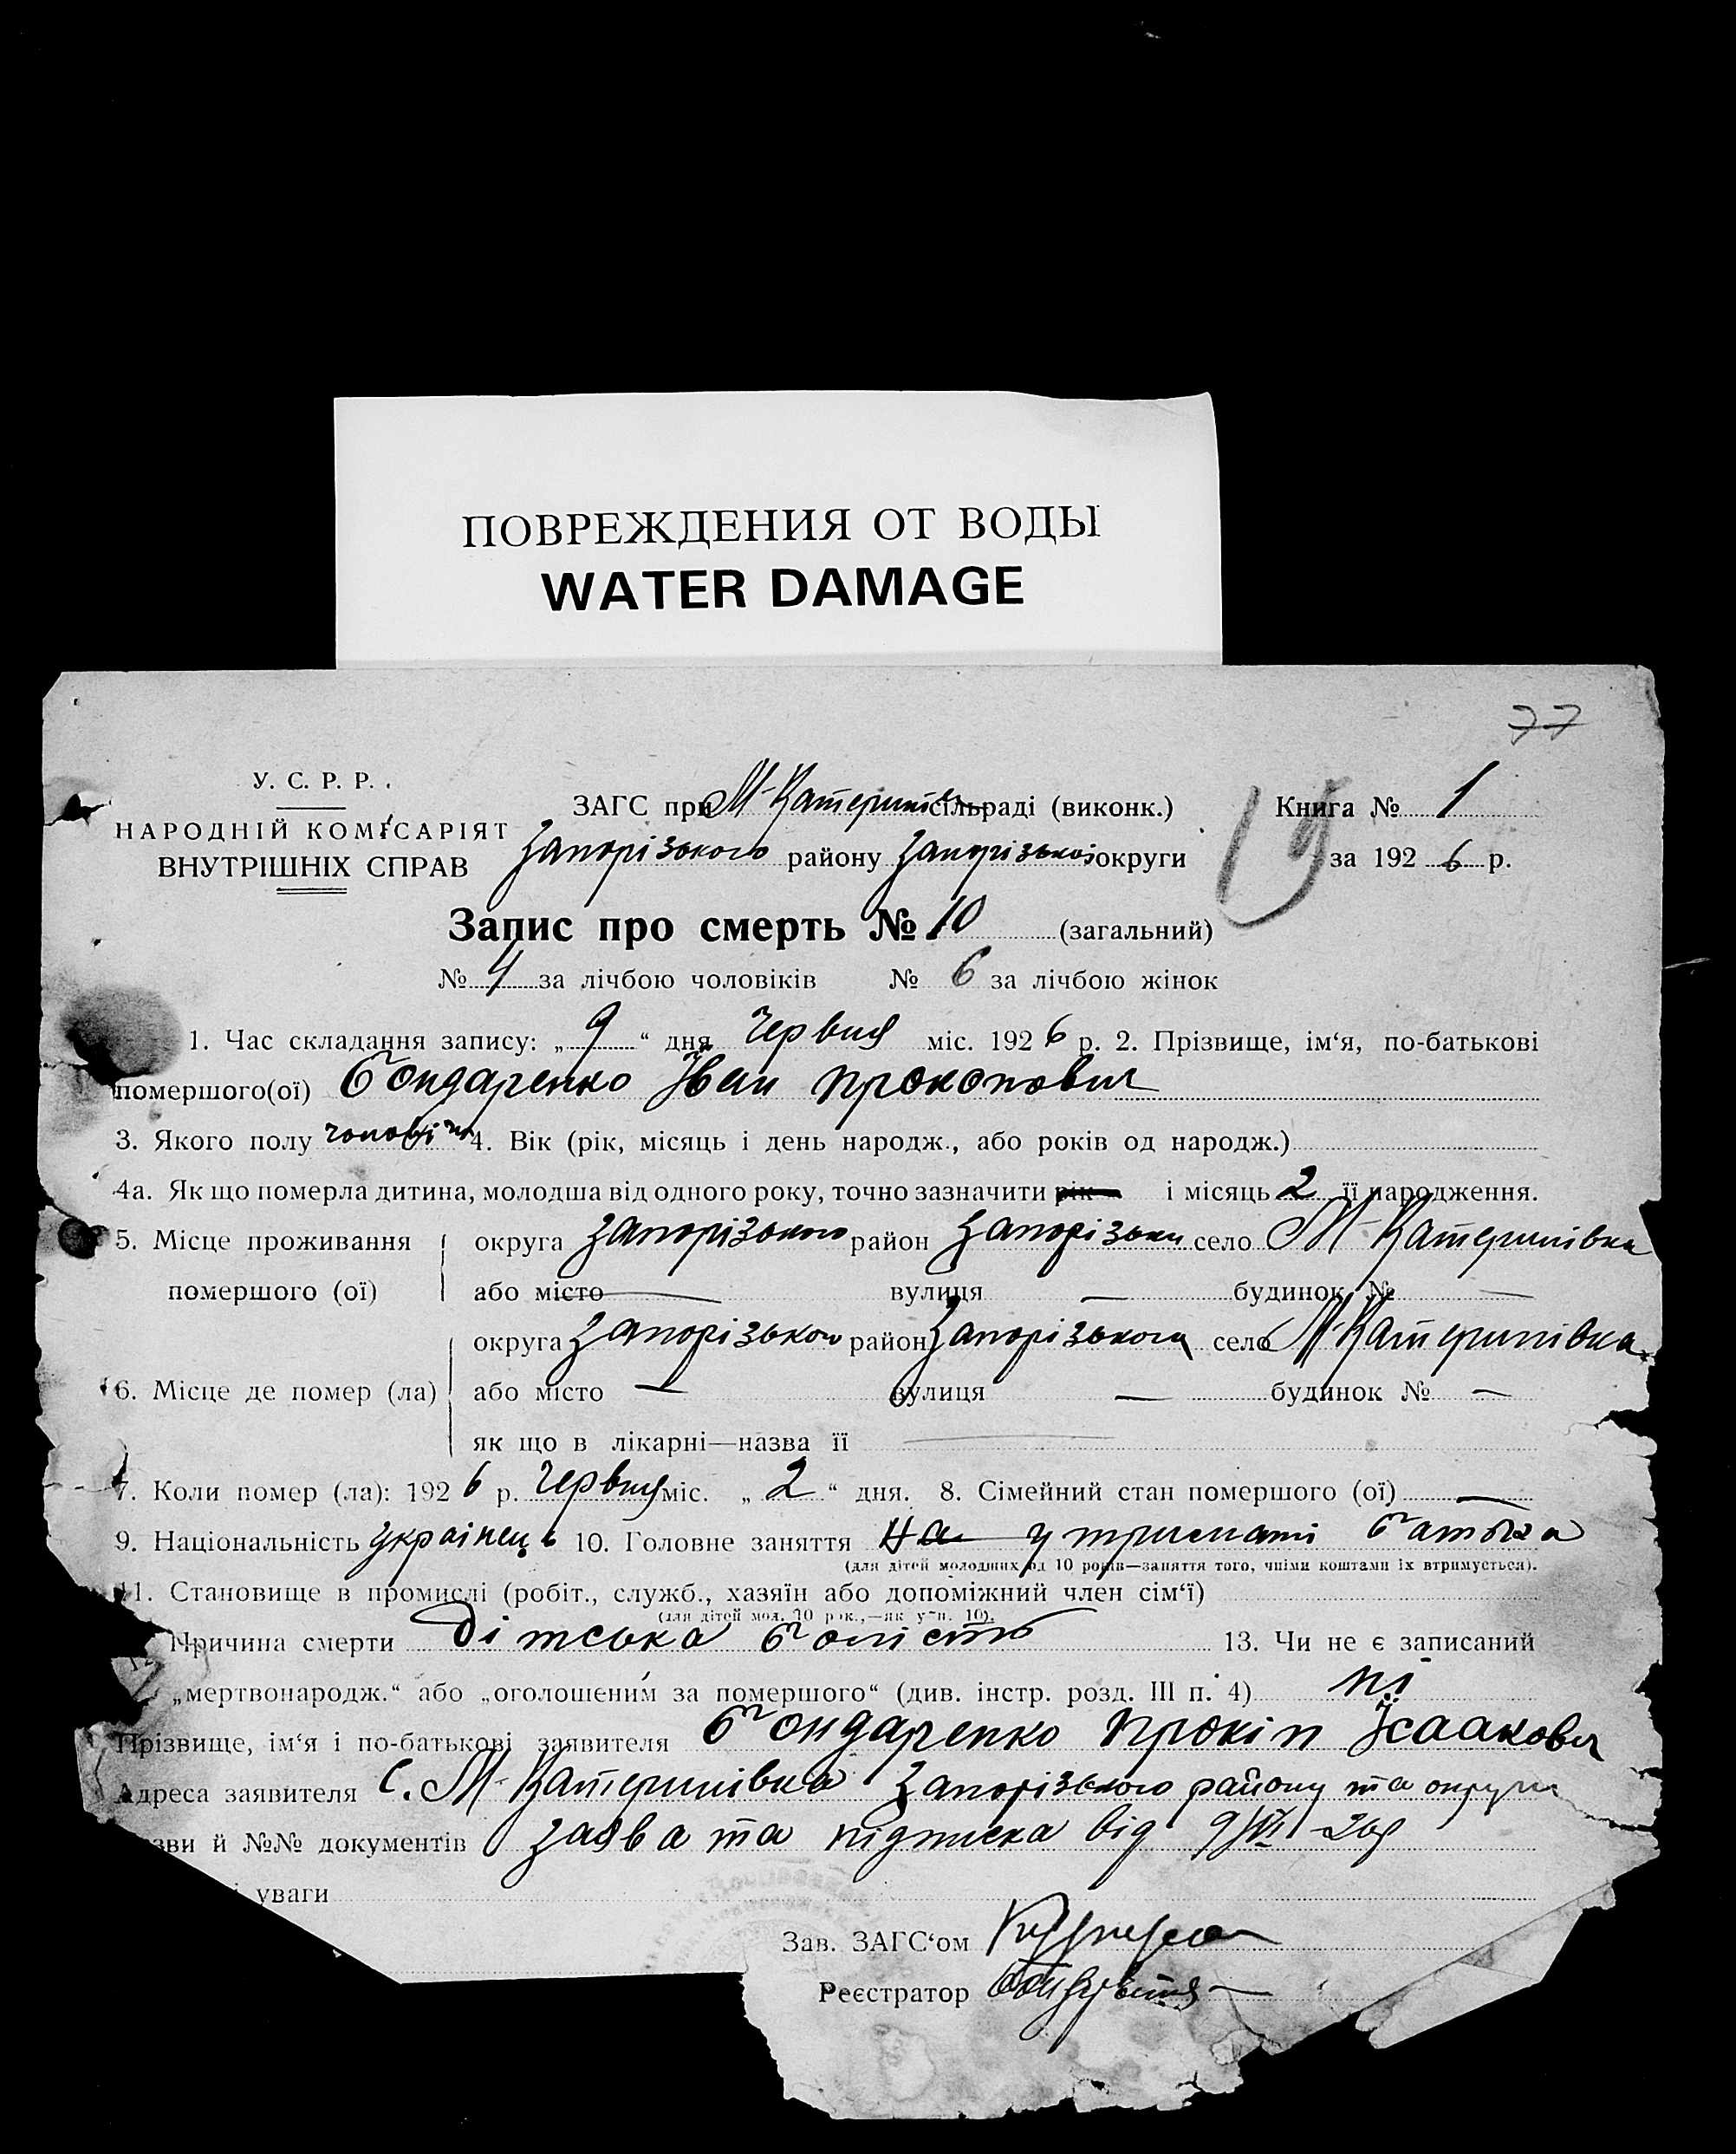 ПОВРЕЖДЕНИЯ ОТ ВОДЫ
WATER DAMAGE
77
У. С. Р. Р.
НАРОДНІЙ КОМІСАРІЯТ
ВНУТРІШНІХ СПРАВ
ЗАГС при М-Катерині сільраді (виконк.)
Запорізького району Запорізької округи
Книга № 1
за 1926 р.
Запис про смерть № 10 (загальний)
№ 4 за лічбою чоловіків № 6 за лічбою жінок
1. Час складання запису: „ 9 “ дня червня міс. 1926 р. 2. Прізвище, ім‘я, по-батькові
помершого(ої) Бондаренко Іван Прокопович
3. Якого полу чоловіч 4. Вік (рік, місяць і день народж., або років од народж.)
4а. Як що померла дитина, молодша від одного року, точно зазначити рік і місяць 2 її народження.
5. Місце проживання помершого (ої)
округа Запорізького район Запорізьки село М-Катеринівка
або місто — вулиця — будинок № —
6. Місце де помер (ла)
округа Запорізького район Запорізького село М-Катеринівка
або місто — вулиця — будинок № —
як що в лікарні—назва її —
7. Коли помер (ла): 1926 р. Червня міс. „ 2 “ дня. 8. Сімейний стан помершого (ої) —
9. Національність українець 10. Головне заняття На утриманні батька
(для дітей молодших од 10 років—заняття того, чиїми коштами їх втримується).
11. Становище в промислі (робіт., служб., хазяїн або допоміжний член сім‘ї)
(для дітей мол. 10 рок.,—як у п. 10).
12. Причина смерти Дітська болість 13. Чи не є записаний
„мертвонародж.“ або „оголошеним за помершого“ (див. інстр. розд. III п. 4) ні
Прізвище, ім‘я і по-батькові заявителя Бондаренко Прокіп Ісаакович
Адреса заявителя с. М-Катеринівка Запорізького району та округи
зви й №№ документів Заява та підписка від 9/VI-26р
і уваги
Зав. ЗАГС‘ом
Реєстратор